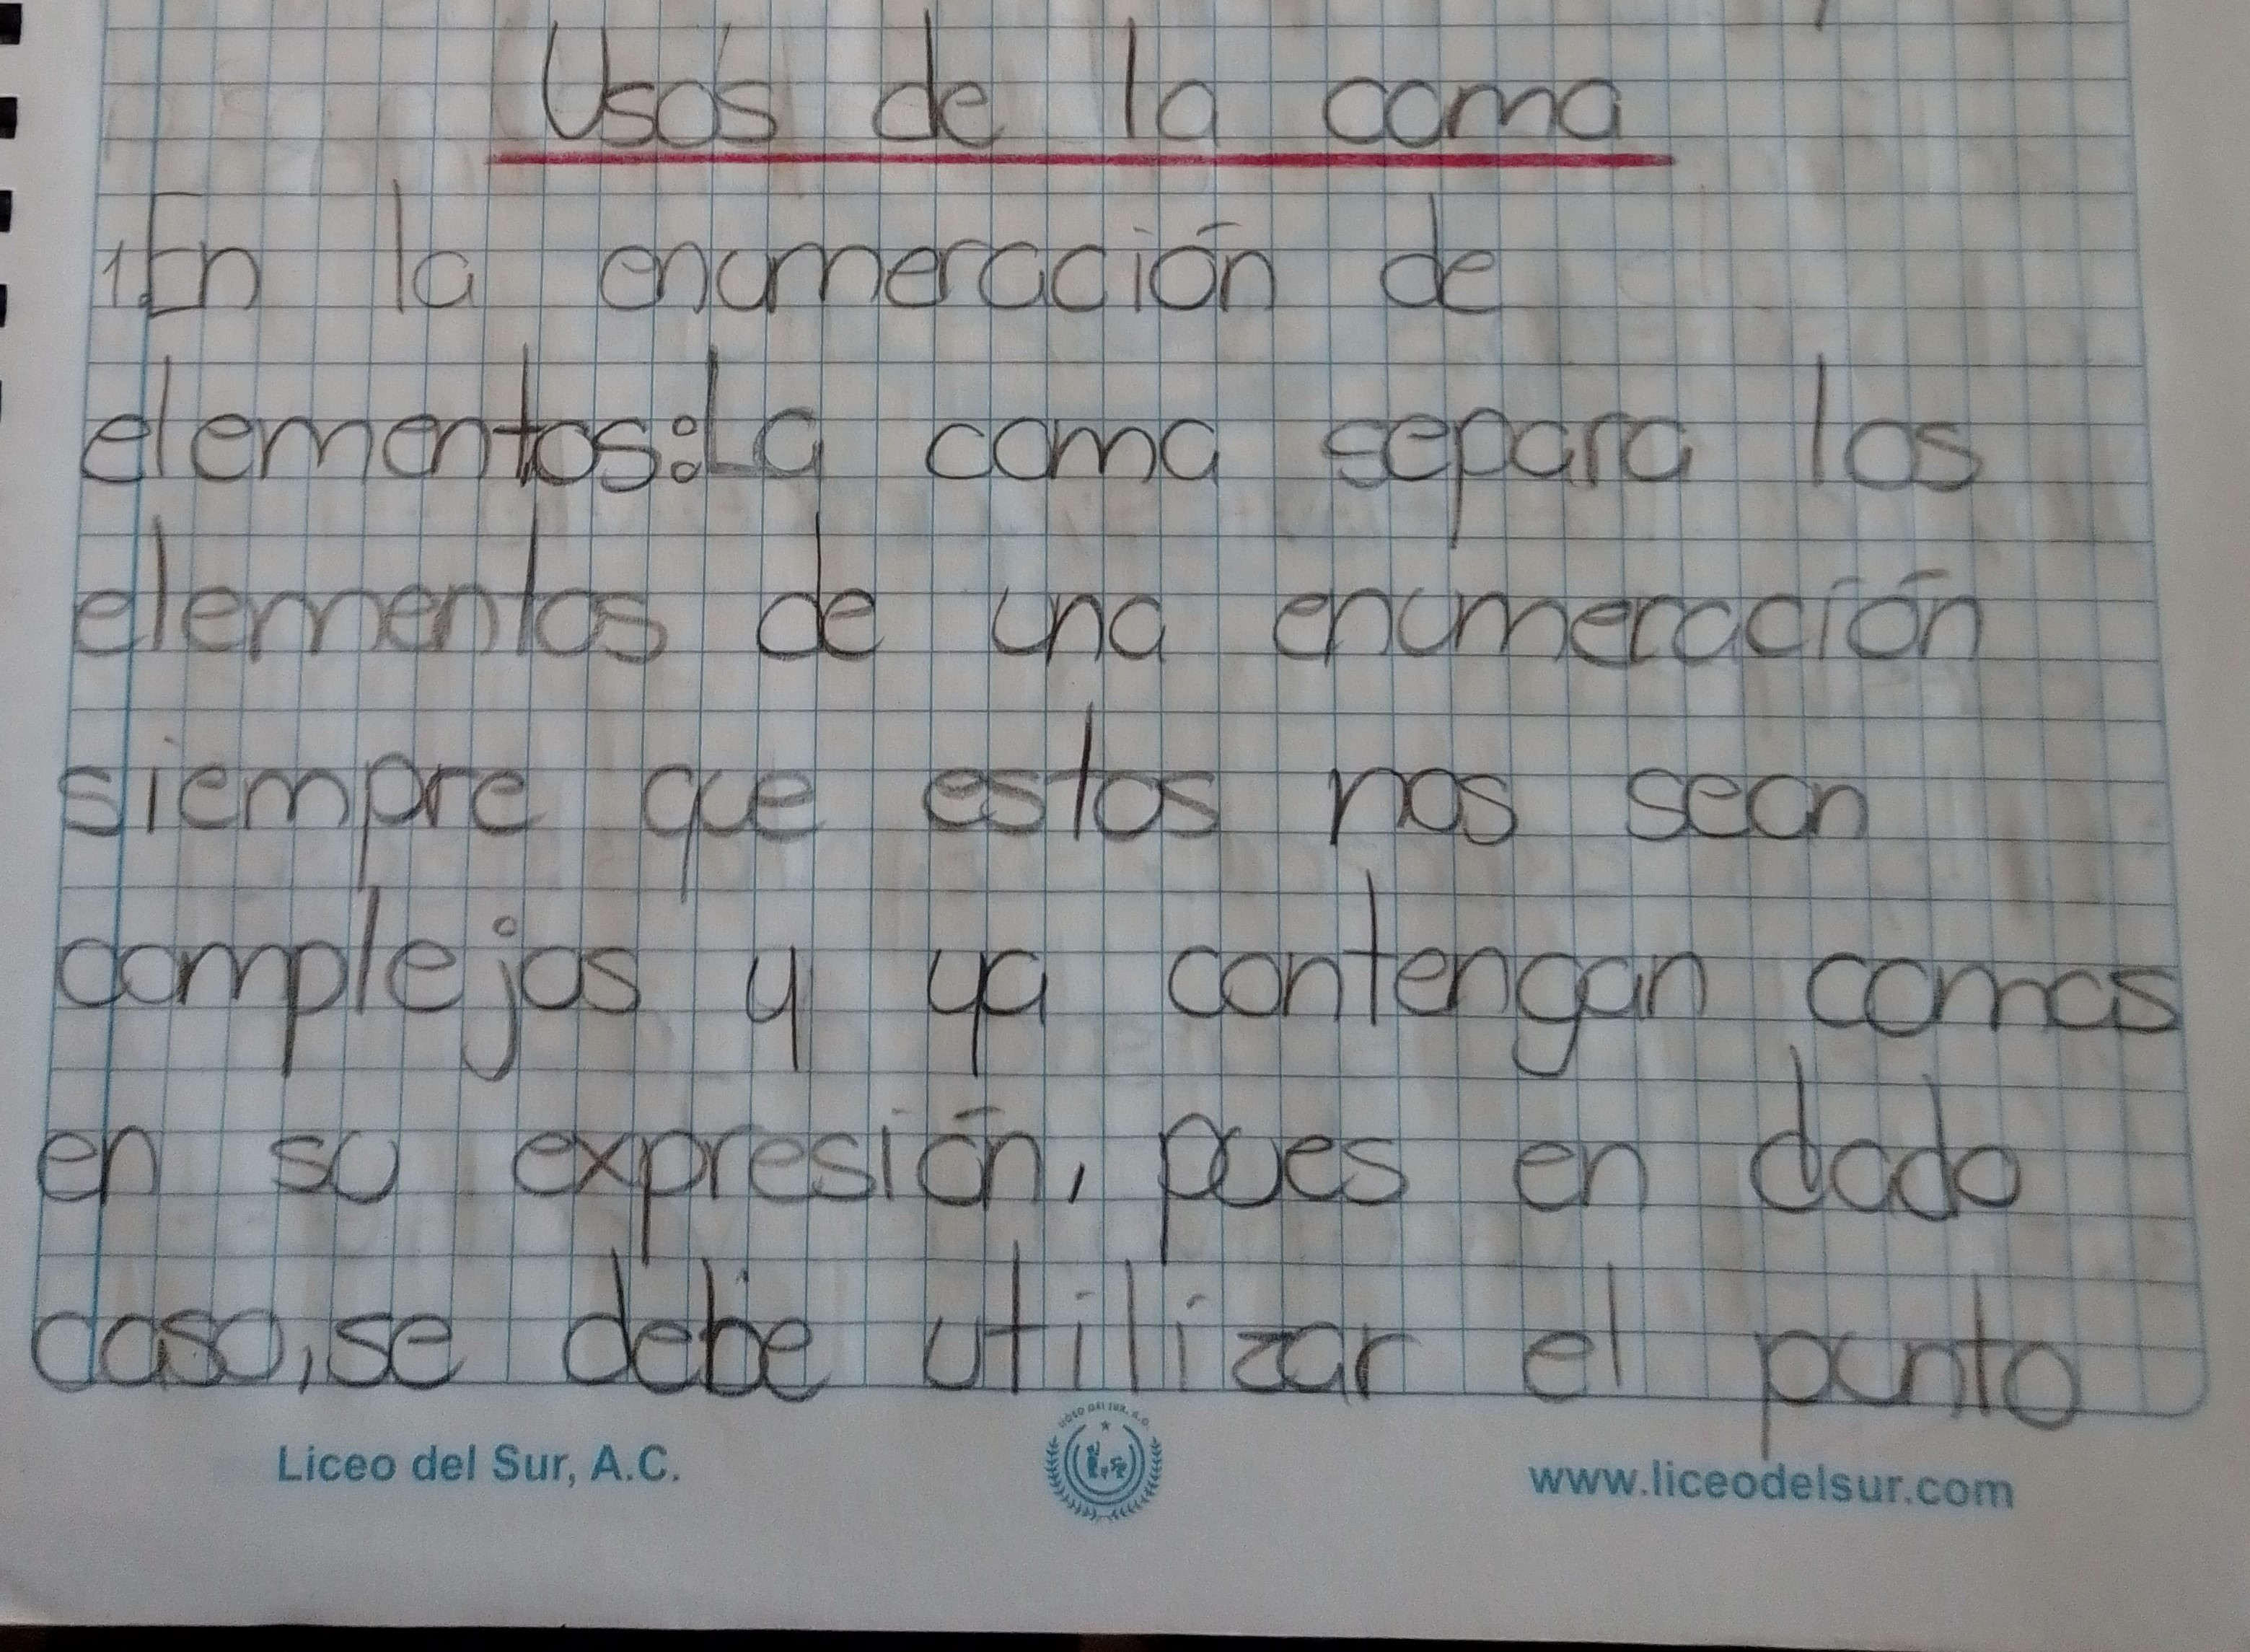 Usos de la coma
1.En la enumeración de
elementos:La coma separa los
elementos de una enumeración
siempre que estos nos sean
complejos y ya contengan comas
en su expresión, pues en dado
caso,se debe utilizar el punto
Liceo del Sur, A.C.
LICEO DEL SUR, A.C.
www.liceodelsur.com